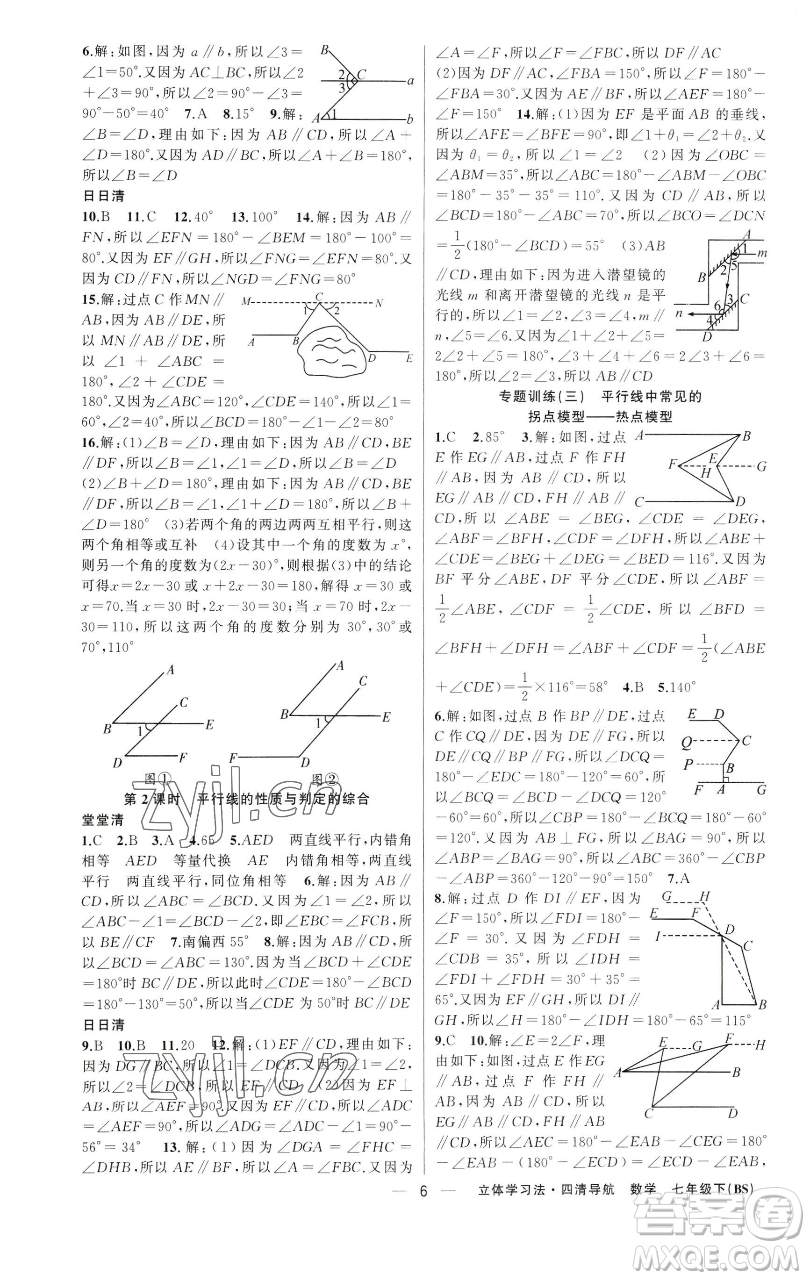 6.解:如图,因为a∥b,所以∠3=
∠1=50°.又因为AC⊥BC,所以∠2
+∠3=90°,所以∠2=90°-∠3=
90°-50°=40° 7.A 8.15° 9.解:
∠B=∠D,理由如下:因为AB∥CD,所以∠A+
∠D=180°.又因为AD∥BC,所以∠A+∠B=180°,
所以∠B=∠D
2
C
3
a
A
1
b
日日清
10.B 11.C 12.40° 13.100° 14.解:因为AB∥
FN,所以∠EFN=180°-∠BEM=180°-100°=
80°.又因为EF∥GH,所以∠NGH=∠EFN=
80°.又因为CD∥FN,所以∠NGD=∠GFN=∠
15.解:过点C作MN∥
AB,因为DE∥AB,所
以MN∥AB∥DE,所
以∠1+∠ABC=
180°,∠2+∠CDE=
180°.又因为∠ABC=120°,∠CDE=140°,所以∠1=
60°,∠2=40°,所以∠BCD=180°-∠1-∠2=80°
M
C
N
1
2
A
B
D
E
16.解:(1)∠B=∠D,理由如下:因为AB∥CD,BE
∥DF,所以∠B=∠1,∠1=∠D,所以∠B=∠D
(2)∠B+∠D=180°,理由如下:因为AB∥CD,BE
∥DF,所以∠B=∠1,∠1+∠D=180°,所以∠B+
∠D=180° (3)若两个角的两边两两互相平行,则这
两个角相等或互补 (4)设其中一个角的度数为x°,
则另一个角的度数为(2x-30)°,则根据(3)中的结论
可得x=2x-30或x+2x-30=180,解得x=30或
x=70.当x=30时,2x-30=30;当x=70时,2x-
30=110,所以这两个角的度数分别为30°,30°或
70°,110°
A
C
B
1
E
D
F
图①
A
C
B
1
E
F
D
图②
第2课时 平行线的性质与判定的综合
堂堂清
1.C 2.B 3.A 4.65 5.AED 两直线平行,内错角
相等 AED 等量代换 AE 内错角相等,两直线
平行 两直线平行,同位角相等 6.解:因为AB∥
CD,所以∠ABC=∠BCD.又因为∠1=∠2,所以
∠ABC-∠1=∠BCD-∠2,即∠EBC=∠FCB,所
以BE∥CF 7.南偏西55° 8.解:因为AB∥CD,所
以∠BCD=∠ABC=130°.因为当∠BCD+∠CDE
=180°时BC∥DE,所以此时∠CDE=180°-∠BCD
=180°-130°=50°,所以当∠CDE为50°时BC∥DE
日日清
9.B 10.B 11.20 12.解:(1)EF∥CD,理由如下:
因为DG∥BC,所以∠1=∠DCB.又因为∠1=∠2,
所以∠2=∠DCB,所以EF∥CD (2)因为EF⊥
AB,所以∠AEF=90°.又因为EF∥CD,所以∠ADC
=∠AEF=90°,所以∠ADG=∠ADC-∠1=90°-
56°=34° 13.解:(1)因为∠DGA=∠FGC,
∠DGA=∠FHB,所以∠FGC=∠FHB,所以AE∥
∠A=∠F,所以∠F=∠FBC,所以DF∥AC
(2)因为AE∥BF,∠FBA=150°,所以∠A=180°-
∠FBA=30°.又因为AE∥BF,所以∠F=180°-
∠F=150° 14.解:(1)因为EF是平面AB的垂线,
所以∠AFE=∠BFE=90°,即∠1+θ₁=∠2+θ₂.又
因为θ₁=θ₂,所以∠1=∠2 (2)因为∠OBC=
∠ABM=35°,所以∠ABC=180°-∠ABM-∠OBC
=180°-35°-35°=110°.又因为CD∥AB,所以
∠BCD=180°-∠ABC=70°,所以∠BCO=∠DCN
=1/2(180°-∠BCD)=55° (3)AB
∥CD,理由如下:因为进入潜望镜的
光线m和离开潜望镜的光线n是平
行的,所以∠1=∠2,∠3=∠4,m∥
n,∠5=∠6.又因为∠1+∠2+∠5=
2∠2+∠5=180°,∠3+∠4+∠6=2∠3+∠6=
180°,所以∠2=∠3,所以AB∥CD
A
1
m
2
5
B
6
3
C
n
4
D
专题训练(三) 平行线中常见的
拐点模型——热点模型
1.C 2.85° 3.解:如图,过点
E作EG∥AB,过点F作FH
∥AB,因为AB∥CD,所以
EG∥AB∥CD,FH∥AB∥
CD,所以∠ABE=∠BEG,∠CDE=∠DEG,
∠ABF=∠BFH,∠CDF=∠DFH,所以∠ABE+
∠CDE=∠BEG+∠DEG=∠BED=116°.又因为
BF平分∠ABE,DF平分∠CDE,所以∠ABF=
1/2∠ABE,∠CDF=1/2∠CDE,所以∠BFD=
∠BFH+∠DFH=∠ABF+∠CDF=1/2(∠ABE
+∠CDE)=1/2×116°=58° 4.B 5.140°
A
B
F
E
G
H
C
D
6.解:如图,过点B作BP∥DE,过点
C作CQ∥DE,因为DE∥FG,所以
DE∥CQ∥BP∥FG,所以∠DCQ=
180°-∠CDE=180°-120°=60°,所
以∠BCQ=∠BCD-∠DCQ=120°
-60°=60°,所以∠CBP=180°-∠BCQ=120°.因为
AB⊥FG,所以∠BAG=90°,所以∠ABP=180°-
∠ABP=∠BAG=90°,所以∠ABC=360°-∠CBP
-∠ABP=360°-120°-90°=150° 7.A
E
D
Q
C
P
B
F
A
G
8.解:过点D作DI∥EF,因为
∠F=150°,所以∠FDI=180°
-∠F=30°.又因为∠FDH=
∠CDB=35°,所以∠IDH=
∠FDI+∠FDH=30°+35°=
65°.又因为∠DBH=65°,所以DI∥
GH,所以EF∥GH
G
H
E
F
D
I
C
A
B
9.C 10.解:∠E=2∠F,理
由如下:如图,过点E作EG
∥AB,因为AB∥CD,所以
EG∥AB∥CD,所以∠GEC
=180°-∠ECD,∠AEG=
∠EAB,所以∠AEC=180°-∠EAB-∠CEG=180°
-∠EAB-(180°-∠ECD)=∠ECD-∠EAB
E
G
F
A
B
C
D
6
立体学习法·四清导航 数学 七年级下(BS)
zyjl.cn
zyjl.cn
答案圈
MXQE.COM